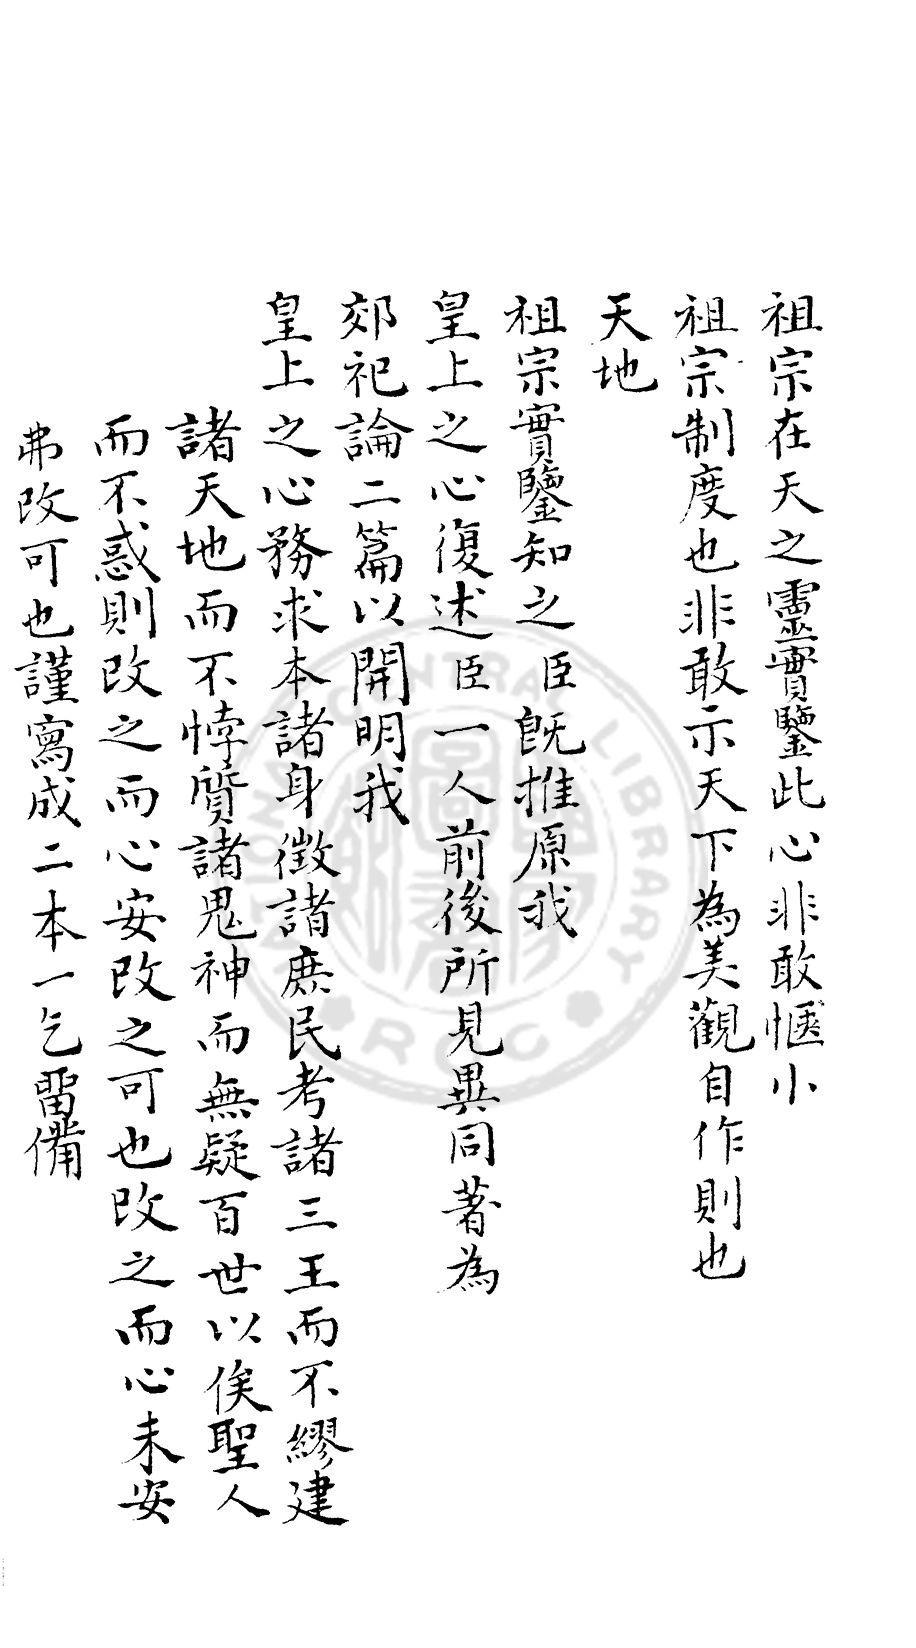 祖宗在天之靈實鑒此心非敢愜小
祖宗制度也非敢示天下為美觀自作則也
天地
祖宗實鑒知之臣既推原我
皇上之心復述臣一人前後所見異同著為
郊祀論二篇以開明我
皇上之心務求本諸身徵諸庶民考諸三王而不繆建
諸天地而不悖質諸鬼神而無疑百世以俟聖人
而不惑則改之而心安改之可也改之而心未安
弗改可也謹寫成二本一乞畱備
NATIONAL CENTRAL LIBRARY
ROC